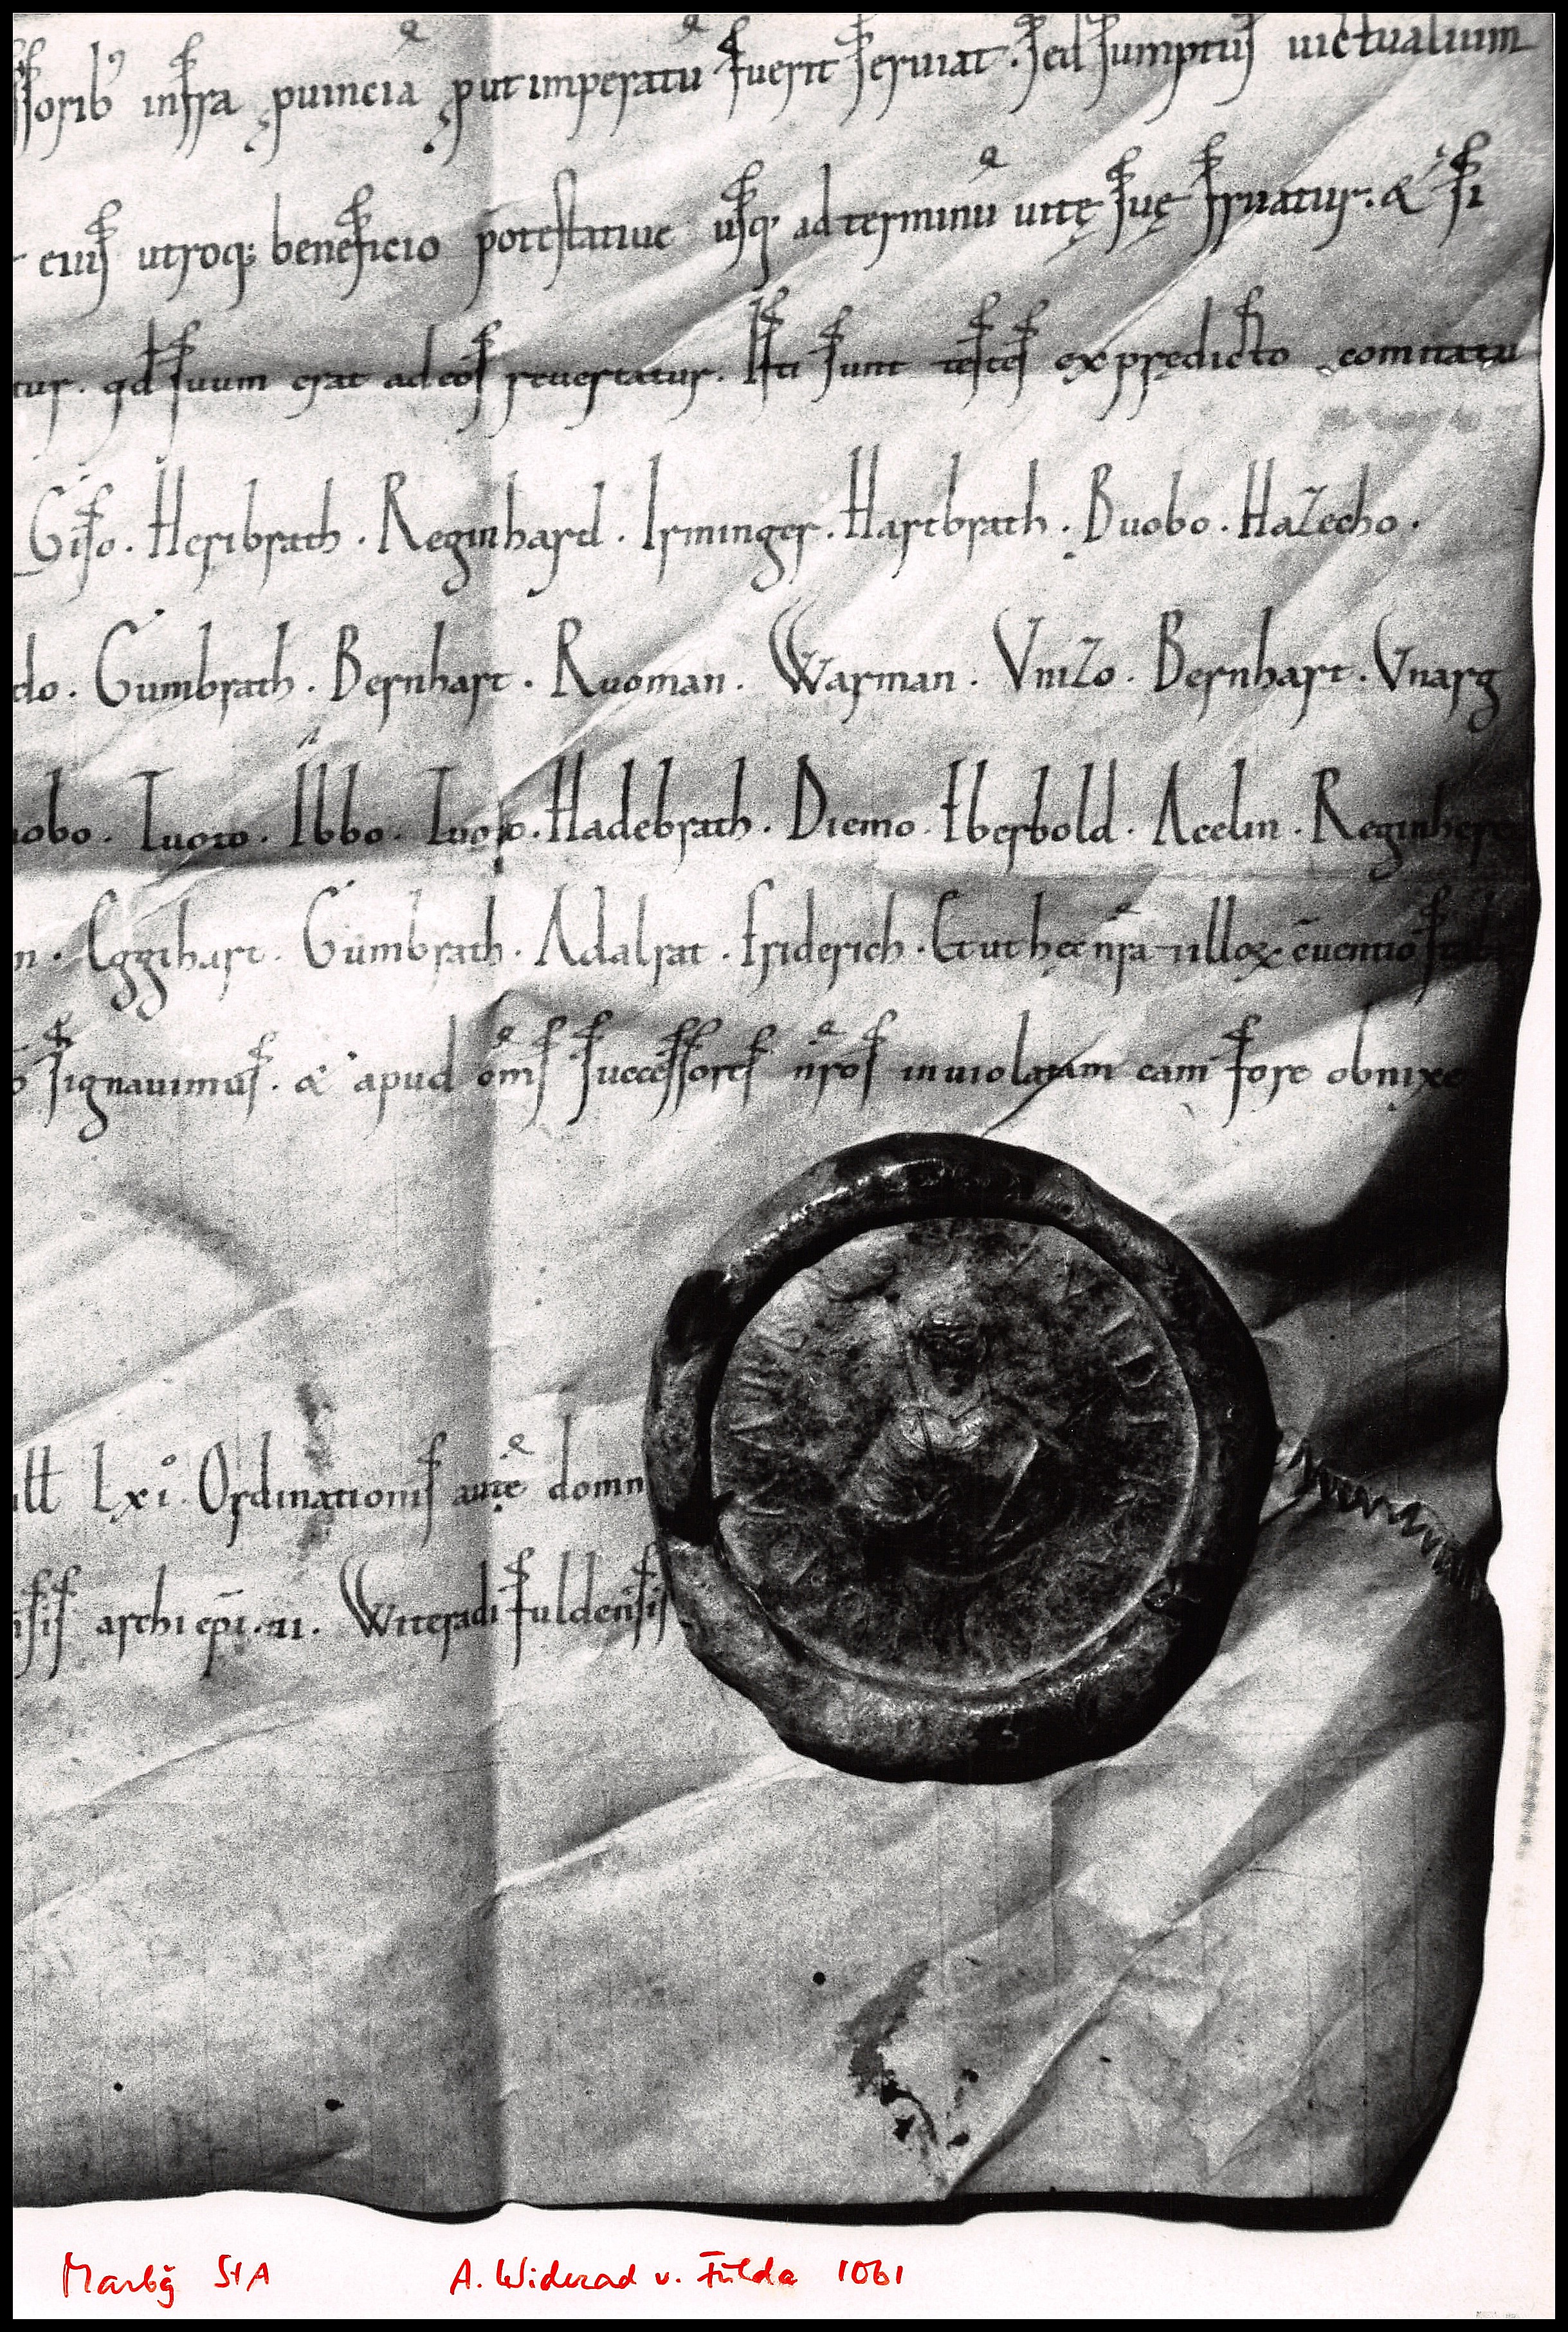 ſſorib᾽ infra ꝓuincia ꝓut imperatū fuerit ſeruiat. ſed ſumptuſ uictualium
eiuſ utroq; beneficio poteſtatiue uſq; ad terminū uitę ſuę fruatur. & ſi
tur. qd ſuum erat ad eoſ reuertatur. Iſti ſunt teſteſ ex prędicto comitatu
Giſo. Heribrath. Reginhard. Irminger. Hartbrath. Buobo. Hazecho.
do. Gumbrath. Bernhart. Ruoman. Warman. Vnizo. Bernhart. Vnarg
uobo. Tuoto. Ibbo. Tuoto. Hadebrath. Diemo. Eberbold. Acelin. Reginhere
n. Eggihart. Gumbrath. Adalrat. Friderich. Et ut hęc nr̄a illoꝝ cuentio
ō ſignauimuſ. & apud om̄ſ ſucceſſoreſ nr̄oſ inuiolatam eam fore obnixe
ill Lxi. Ordinationiſ autē domn
nſiſ archiepi. ii. Witeradi fuldenſiſ
VVID
Marbg StA A. Widerad v. Fulda 1061